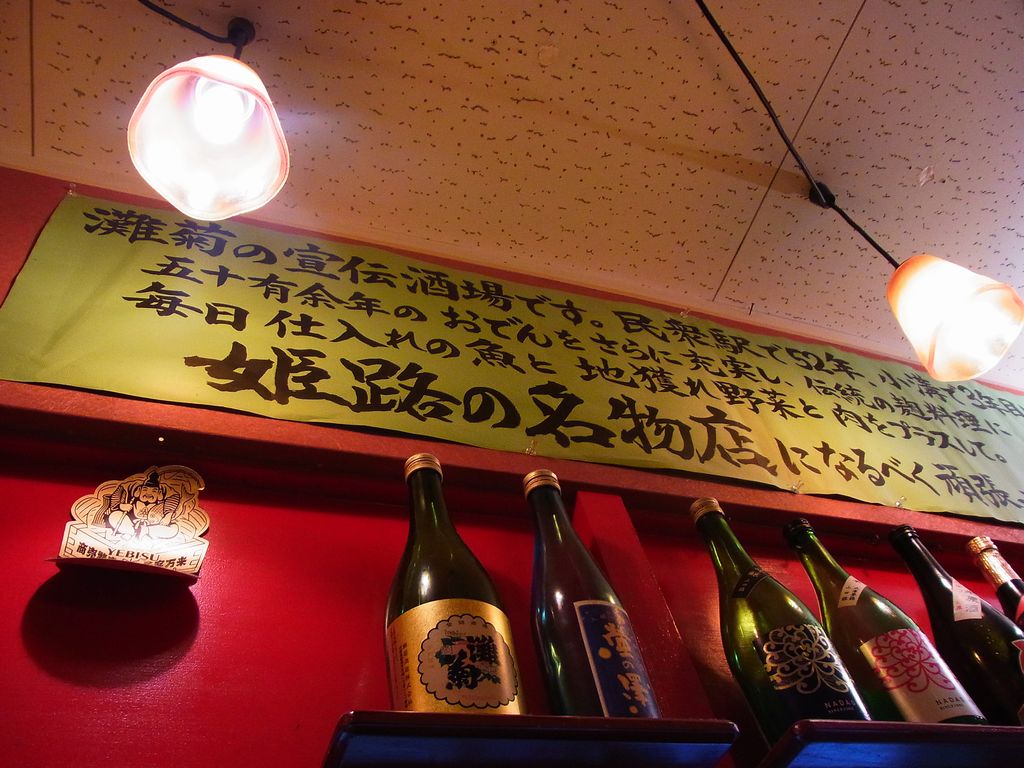 灘菊の宣伝酒場です。民衆駅で52年、小溝で2年目
五十有余年のおでんをさらに充実し、伝統の麹料理に
毎日仕入れの魚と地獲れ野菜と肉をプラスして。
姫路の名物店になるべく頑張
YEBISU
灘菊
蛍の
NADA
NADA